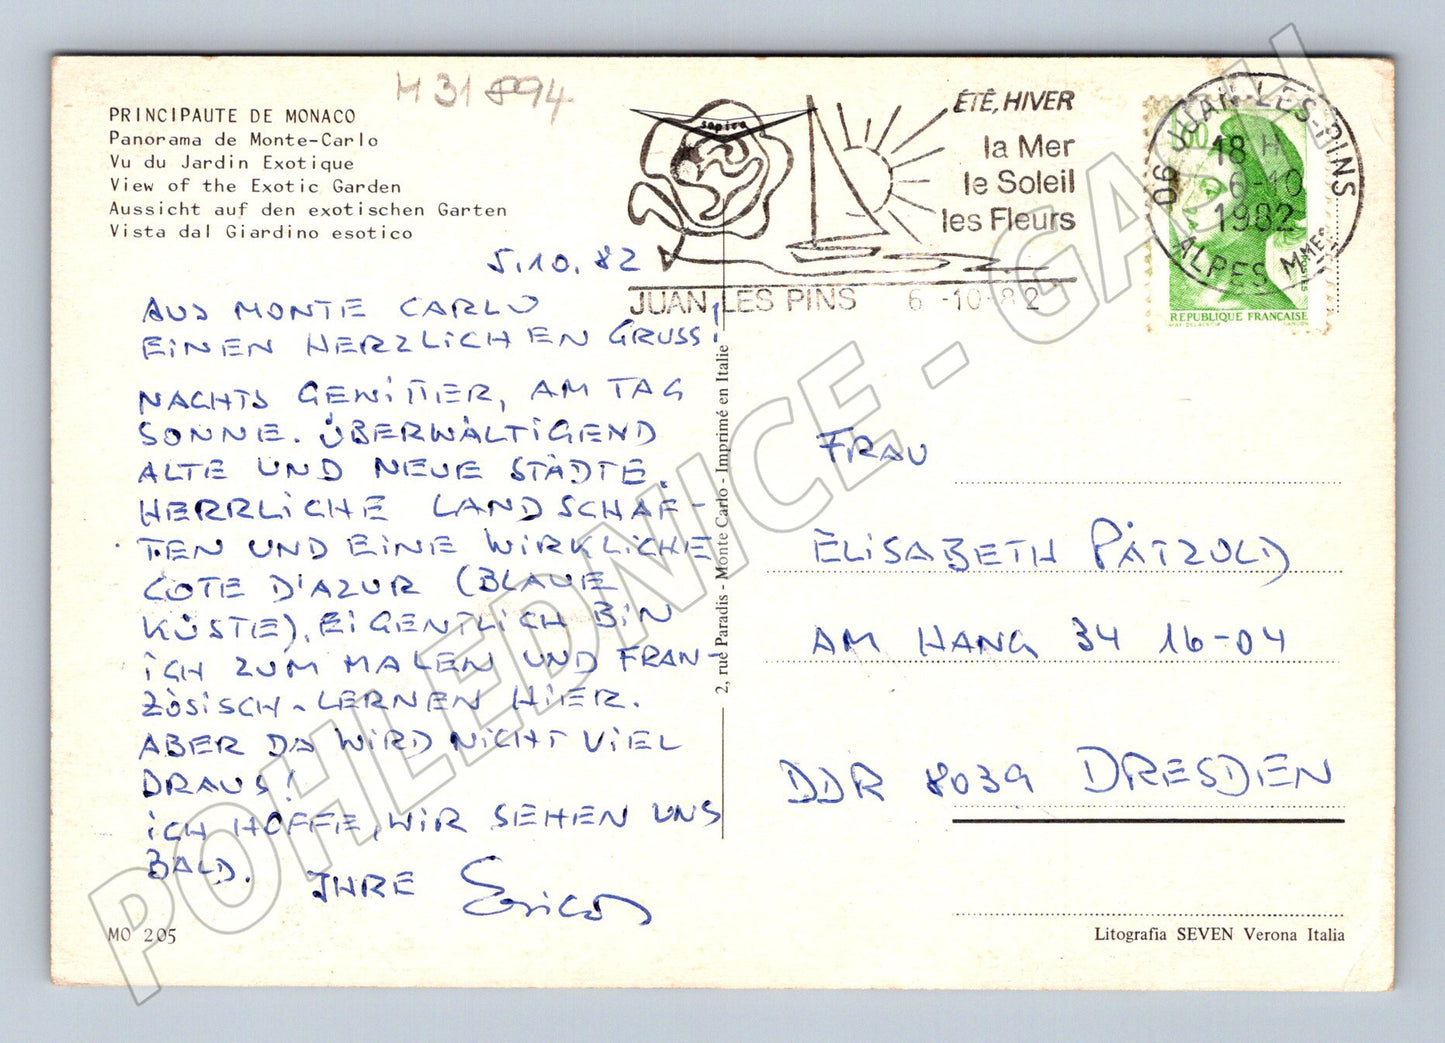 H 31 894
PRINCIPAUTE DE MONACO
Panorama de Monte-Carlo
Vu du Jardin Exotique
View of the Exotic Garden
Aussicht auf den exotischen Garten
Vista dal Giardino esotico
5.10.82
AUS MONTE CARLO
EINEN HERZLICHEN GRUSS!
NACHTS GEWITTER, AM TAG
SONNE. ÜBERWÄLTIGEND
ALTE UND NEUE STÄDTE.
HERRLICHE LANDSCHAF-
TEN UND EINE WIRKLICHE
COTE D'AZUR (BLAUE
KÜSTE). EIGENTLICH BIN
ICH ZUM MALEN UND FRAN-
ZÖSISCH-LERNEN HIER.
ABER DA WIRD NICHT VIEL
DRAUS!
ICH HOFFE, WIR SEHEN UNS
BALD. IHRE
MO 205
2, rue Paradis - Monte Carlo - Imprimé en Italie
sapira
ÉTÉ, HIVER
la Mer
le Soleil
les Fleurs
JUAN LES PINS 6 -10-82
06 JUAN-LES-PINS
18 H
6-10
1982
ALPES MMES
POSTES
REPUBLIQUE FRANCAISE
FRAU
ELISABETH PÄTZOLD
AM HANG 34 16-04
DDR 8039 DRESDEN
Litografia SEVEN Verona Italia
POHLEDNICE - GAUU